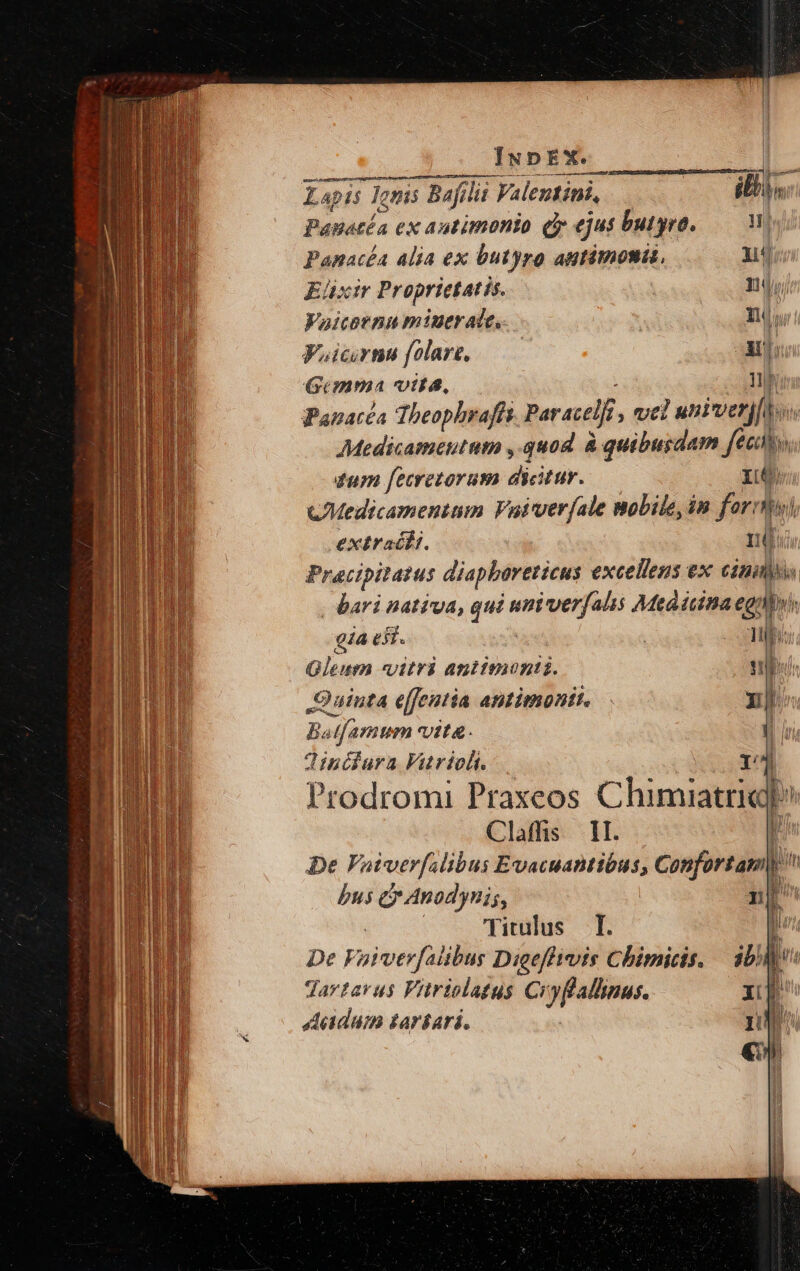 INDEX.
Lapis Ignis Basilii Valentini, ibi
Panacéa ex antimonio & ejus butyro.
Panacéa alia ex butyro antimonii.
Elixir Proprietatis.
Vnicornu minerale.
Vnicornu ſolare.
Gemma vitæ,
Panacéa Theophraſti Paracelſi, vel univerſ
Medicamentum, quod à quibusdam ſec
dum ſecretorum dicitur.
Medicamentum Vniverſale nobile, in for
extracti.
Præcipitatus diaphoreticus excellens ex cin
bari nativa, qui univerſalis Medicina eg
gia eſt.
Oleum vitri antimonii.
Quinta eſſentia antimonii.
Balſamum vitæ.
Tinctura Vitrioli.
Prodromi Praxeos Chimiatric
Claſſis II.
De Vniverſalibus Evacuantibus, Confortan
bus & Anodynis,
Titulus I.
De Vniverſalibus Digeſtivis Chimicis. ibi
Tartarus Vitriolatus Cryſtallinus.
Acidum tartari.